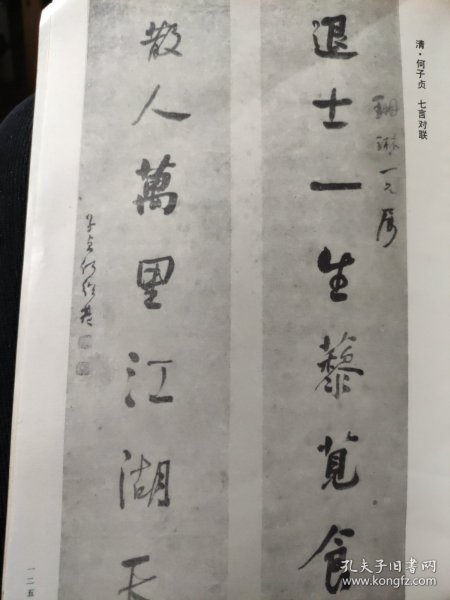 清·何子贞 七言对联
退士一生藜莧食
散人萬里江湖天
子貞何紹基
一二五
孔夫子旧书网
www.kongfz.com